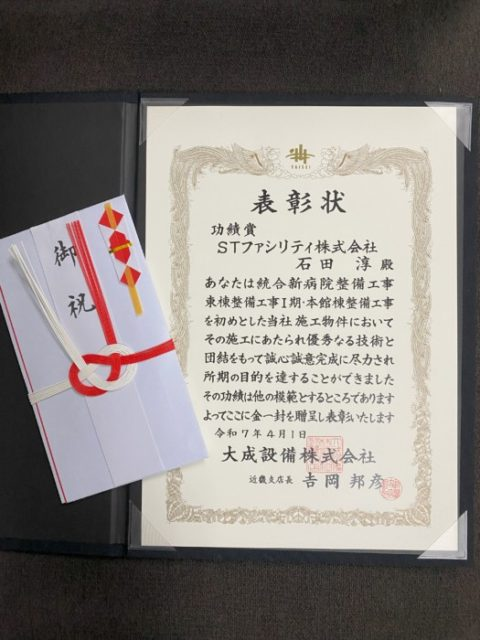 御祝
TAISEI
表彰状
功績賞
STファシリティ株式会社
石田 淳 殿
あなたは統合新病院整備工事
東棟整備工事Ⅰ期・本館棟整備工事
を初めとした当社施工物件において
その施工にあたられ優秀なる技術と
団結をもって誠心誠意完成に尽力され
所期の目的を達することができました
その功績は他の模範とするところであります
よってここに金一封を贈呈し表彰いたします
令和7年4月1日
大成設備株式会社
近畿支店長 吉岡邦彦